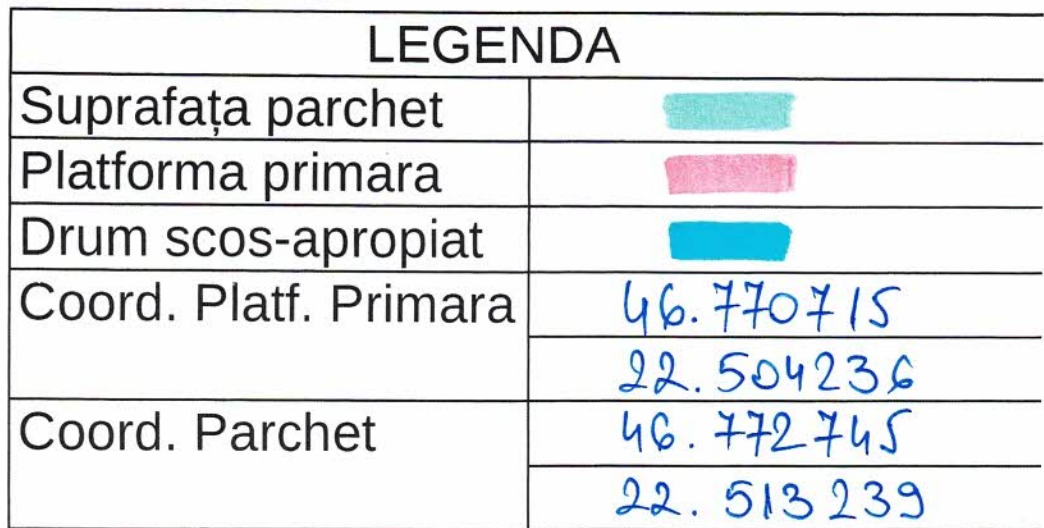 LEGENDA
Suprafața parchet
Platforma primara
Drum scos-apropiat
Coord. Platf. Primara 46.770715
22.504236
Coord. Parchet 46.772745
22.513239